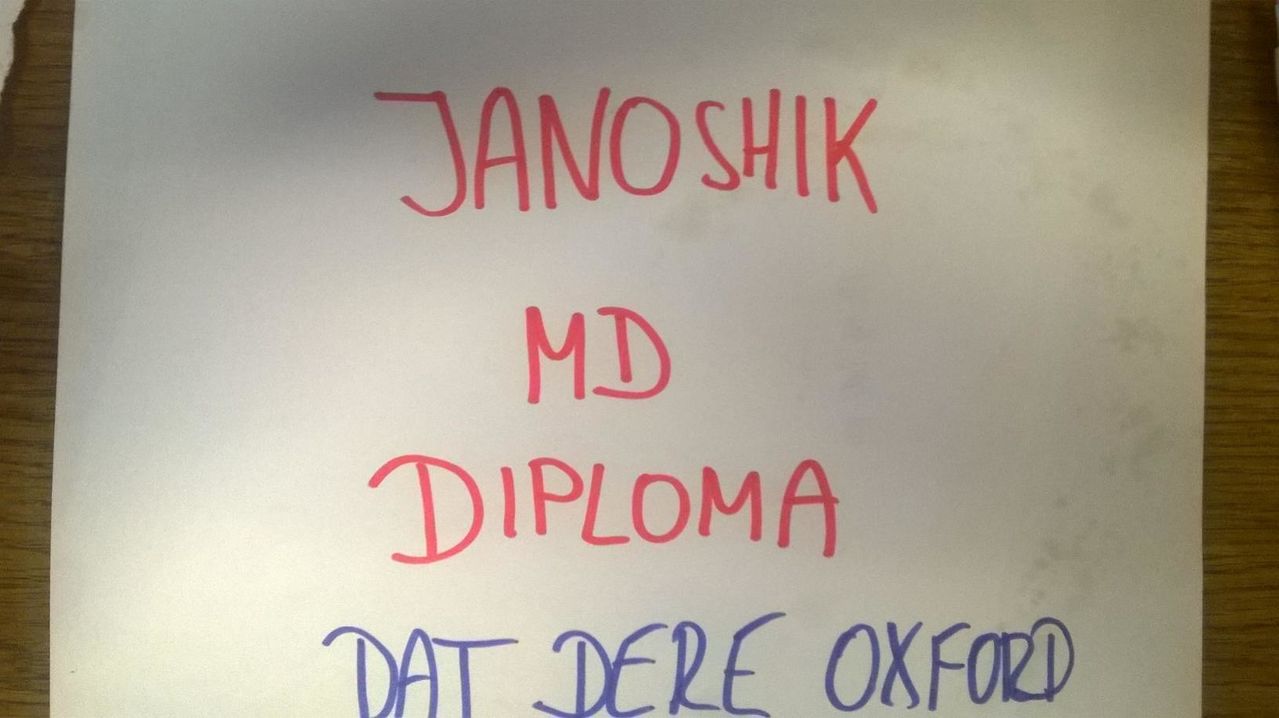 JANOSHIK
MD
DIPLOMA
DAT DERE OXFORD